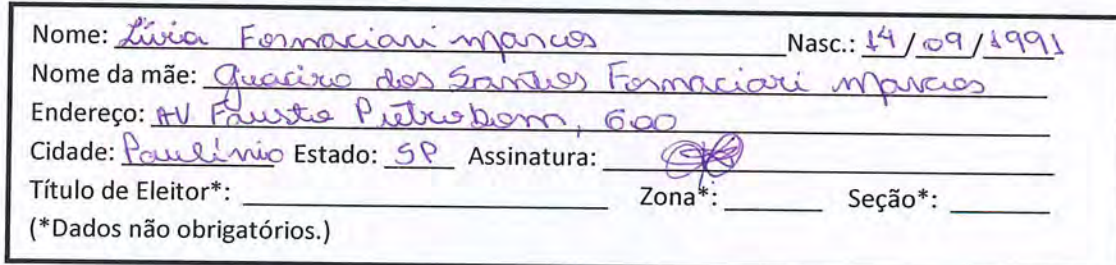 Nome: Lívia Fornaciari Marcos Nasc.: 14/09/1991
Nome da mãe: Guacira dos Santos Fornaciari Marcos
Endereço: AV Fausto Pietrobom, 600
Cidade: Paulínia Estado: SP Assinatura:
Título de Eleitor*: Zona*: Seção*:
(*Dados não obrigatórios.)